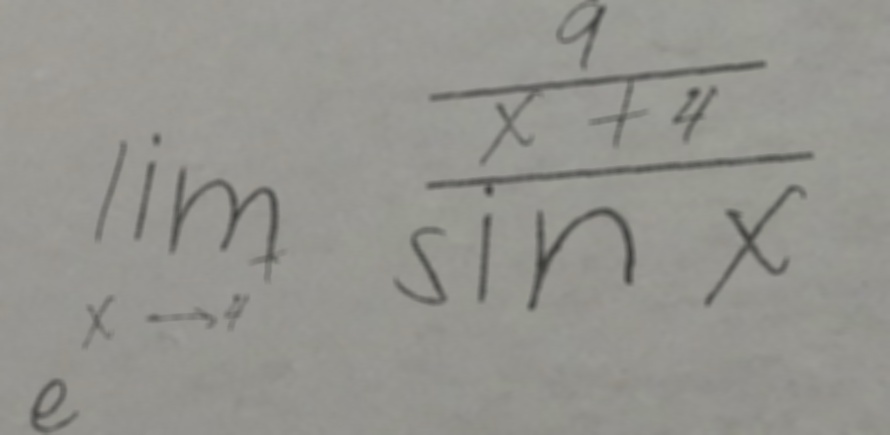 e^{\lim_{x \to 4} \frac{\frac{9}{x + 4}}{\sin x}}